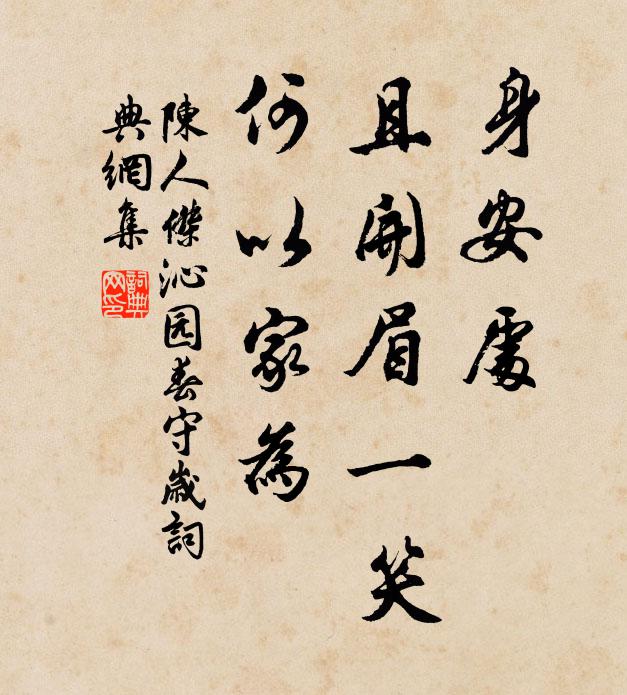 身安處
且開眉一笑
何以家為
陳人傑沁园春守歲詞
典網集
詞典
网印